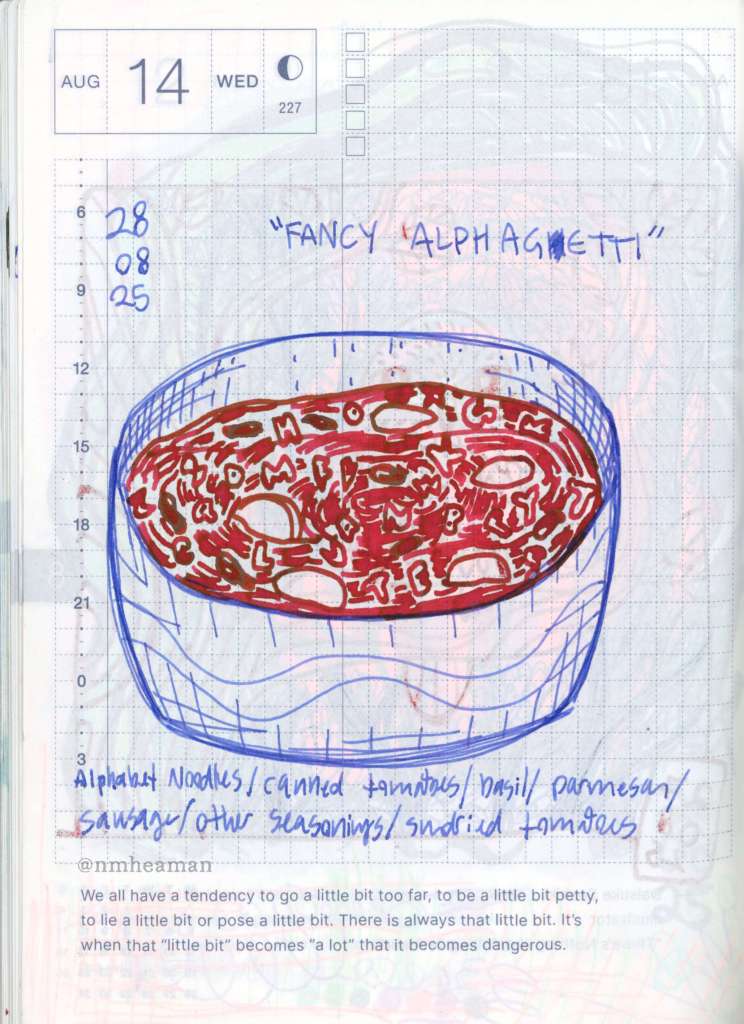 AUG 14 WED
227
6
9
12
15
18
21
0
3
28
08
25
"FANCY ALPHAGHETTI"
Alphabet Noodles/canned tomatoes/basil/parmesan/
sausage/other seasonings/sundried tomatoes
@nmheaman
We all have a tendency to go a little bit too far, to be a little bit petty,
to lie a little bit or pose a little bit. There is always that little bit. It's
when that "little bit" becomes "a lot" that it becomes dangerous.